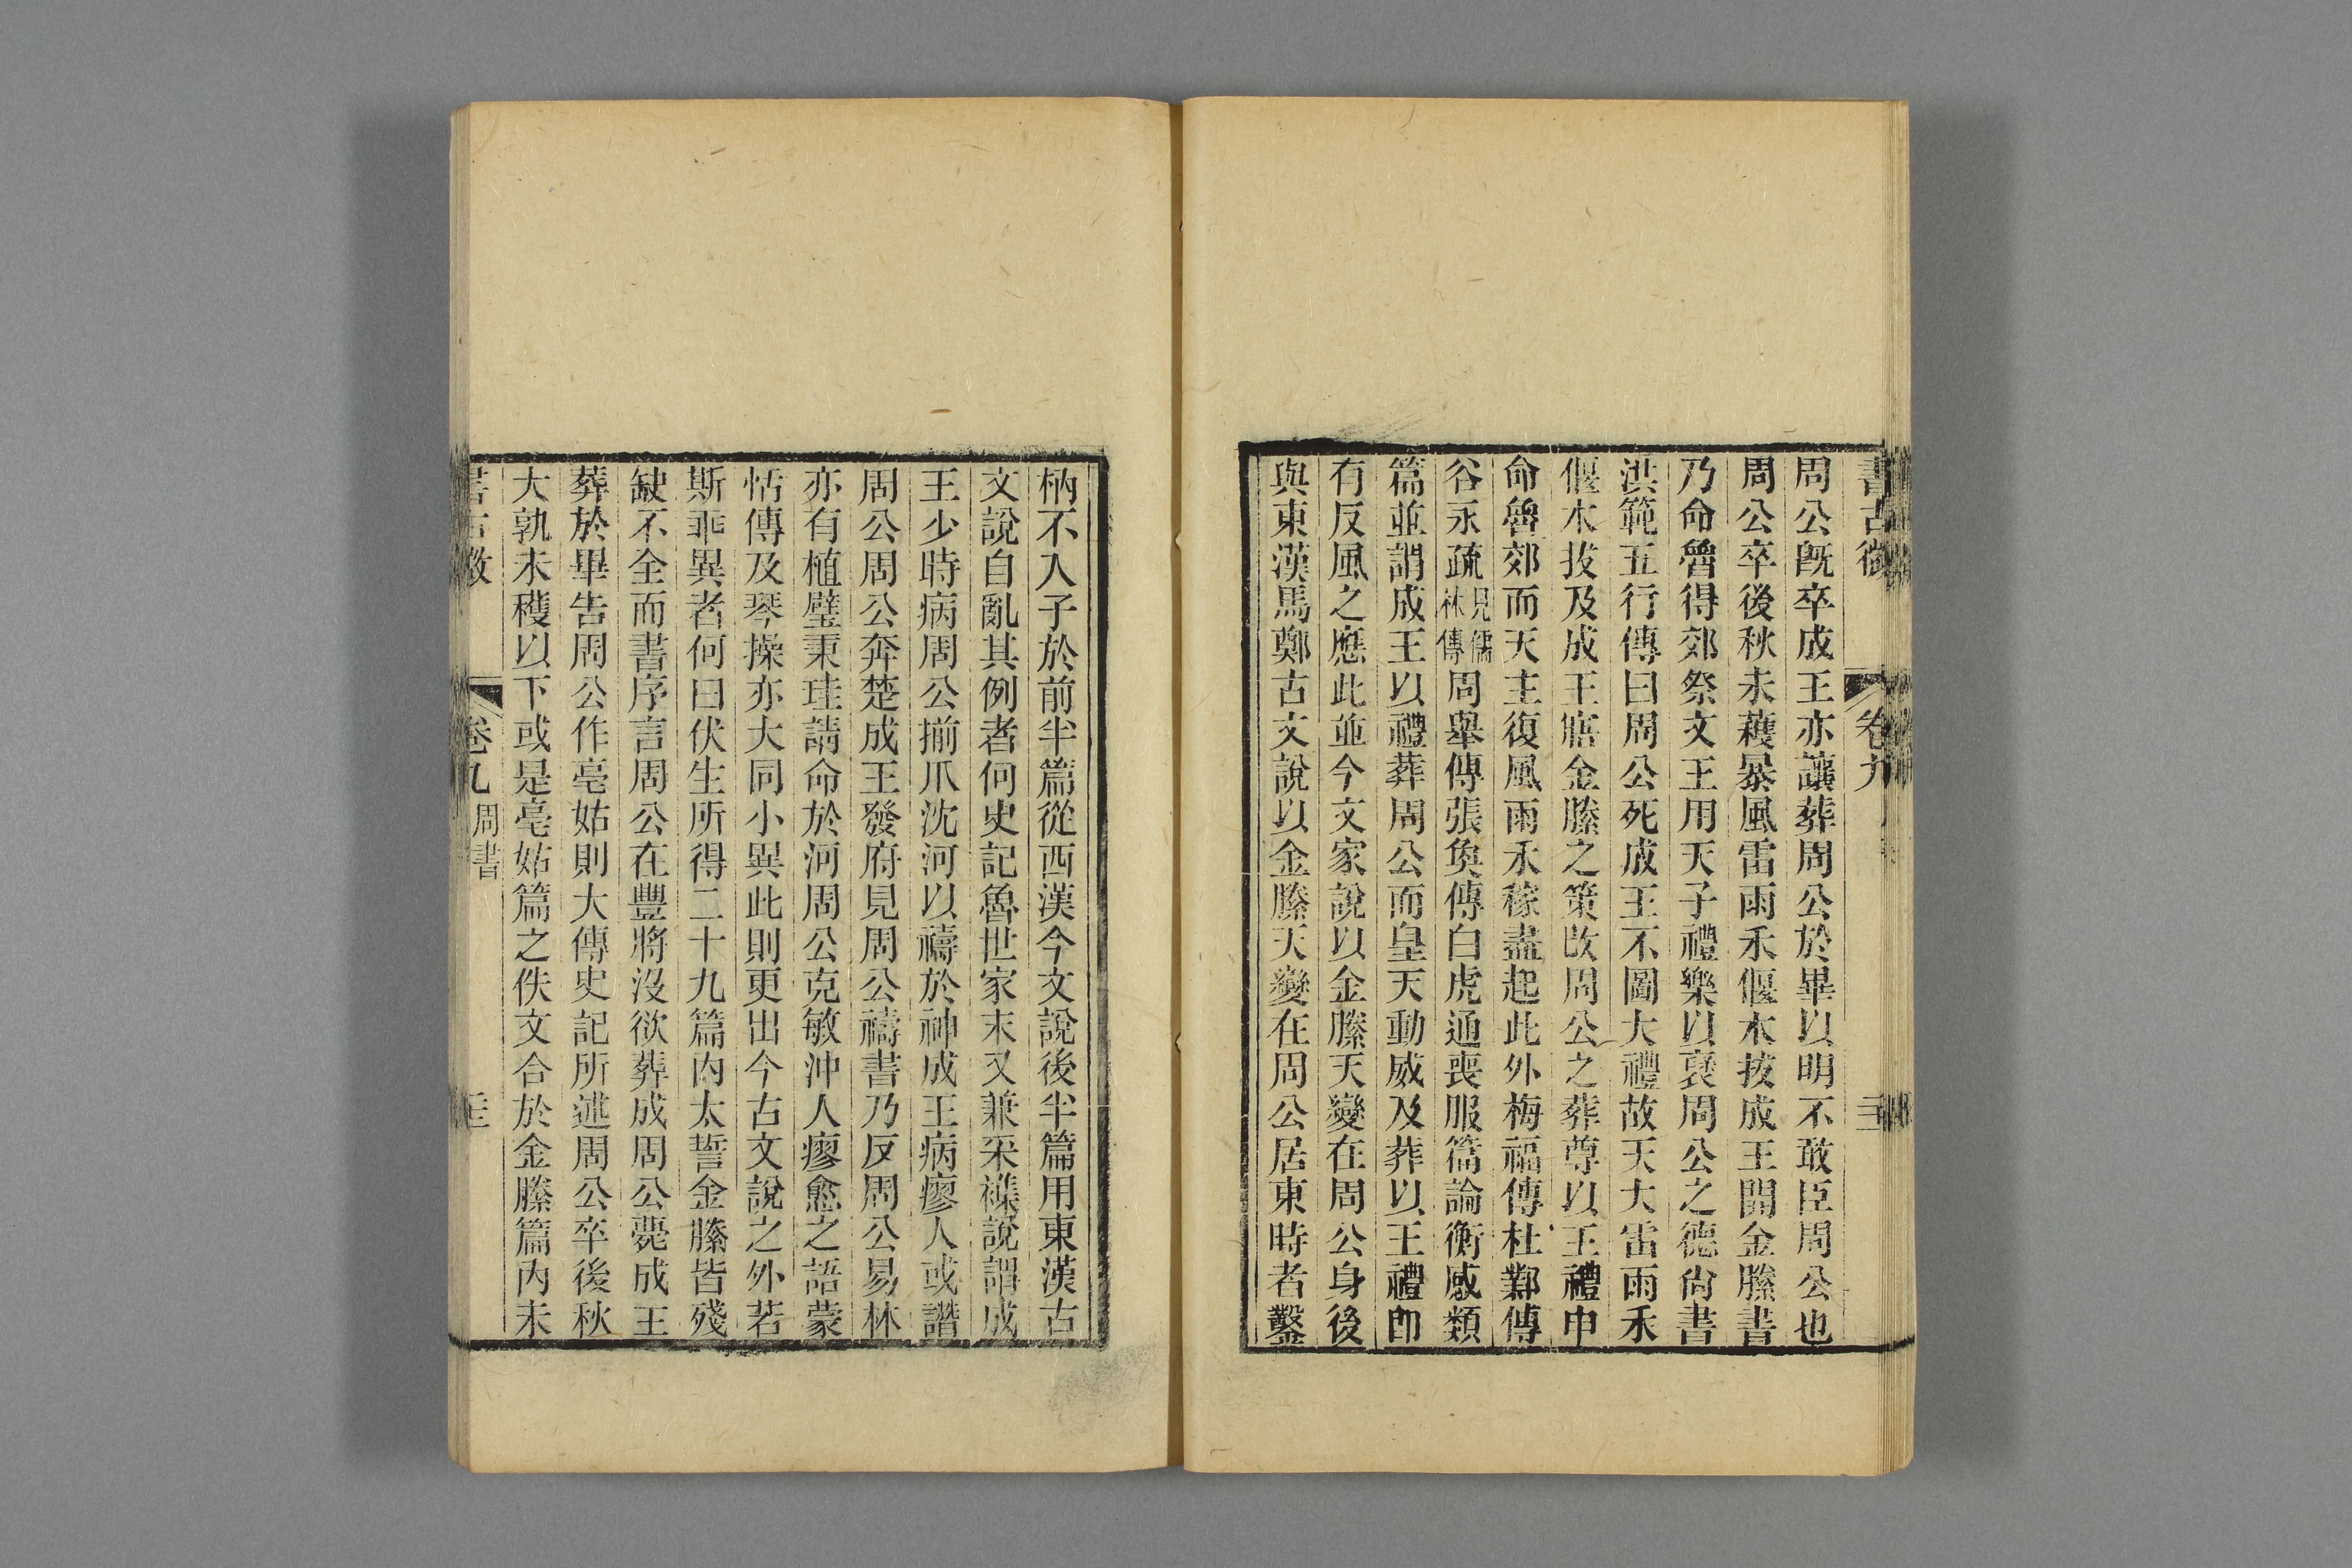 書古微 卷九
周公旣卒成王亦讓葬周公於畢以明不敢臣周公也
周公卒後秋未穫暴風雷雨禾偃木拔成王開金縢書
乃命魯得郊祭文王用天子禮樂以襃周公之德尙書
洪範五行傳曰周公死成王不圖大禮故天大雷雨禾
偃木拔及成王寤金縢之策改周公之葬尊以王禮申
命魯郊而天主復風雨禾稼盡起此外梅福傳杜鄴傳
谷永疏見儒林傳周舉傳張奐傳白虎通喪服篇論衡感類
篇並謂成王以禮葬周公而皇天動威及葬以王禮卽
有反風之應此並今文家說以金縢天變在周公身後
與東漢馬鄭古文說以金縢天變在周公居東時者鑿
枘不入子於前半篇從西漢今文說後半篇用東漢古
文說自亂其例者何史記魯世家末又兼采襍說謂成
王少時病周公揃爪沈河以禱於神成王病瘳人或譖
周公周公奔楚成王發府見周公禱書乃反周公易林
亦有植璧秉珪請命於河周公克敏沖人瘳愈之語蒙
恬傳及琴操亦大同小異此則更出今古文說之外若
斯乖異者何曰伏生所得二十九篇內太誓金縢皆殘
缺不全而書序言周公在豐將沒欲葬成周公薨成王
葬於畢告周公作亳姑則大傳史記所述周公卒後秋
大孰未穫以下或是亳姑篇之佚文合於金縢篇內未
書古微 卷九 周書